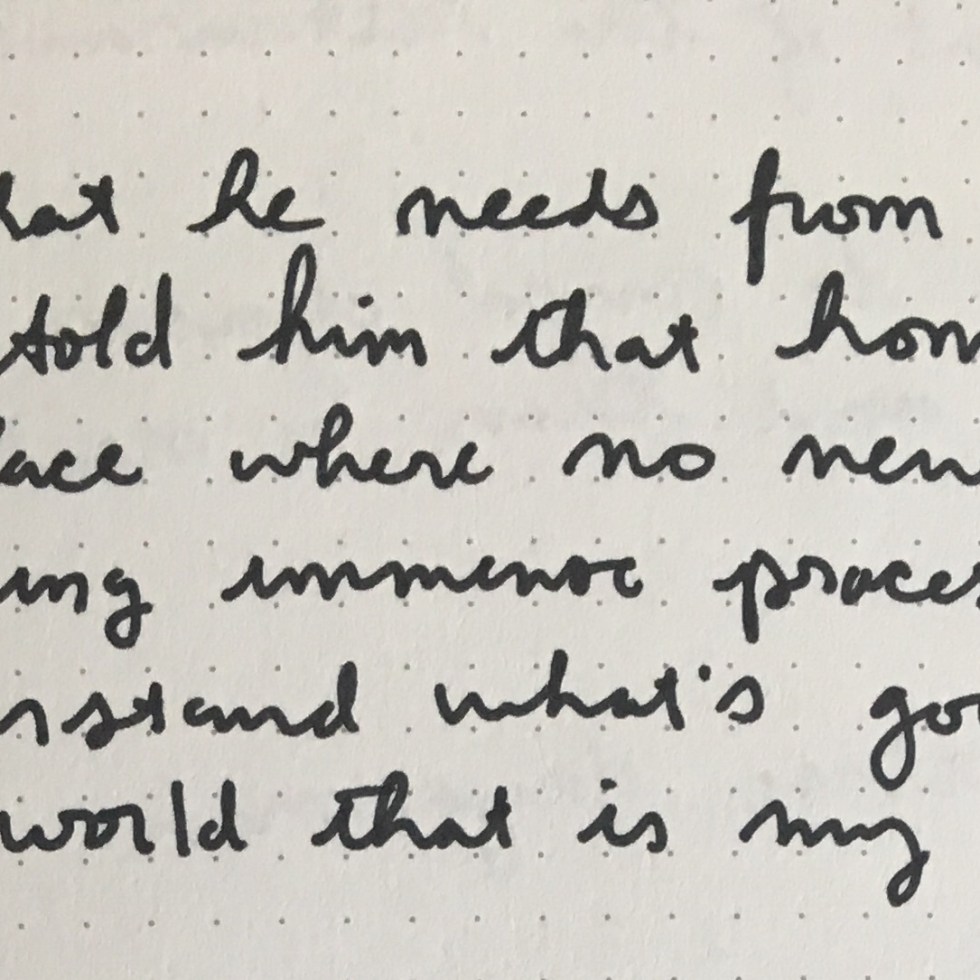 hat he needs from
told him that hom
lace where no new
ing immense proces
rstand what's go
world that is my